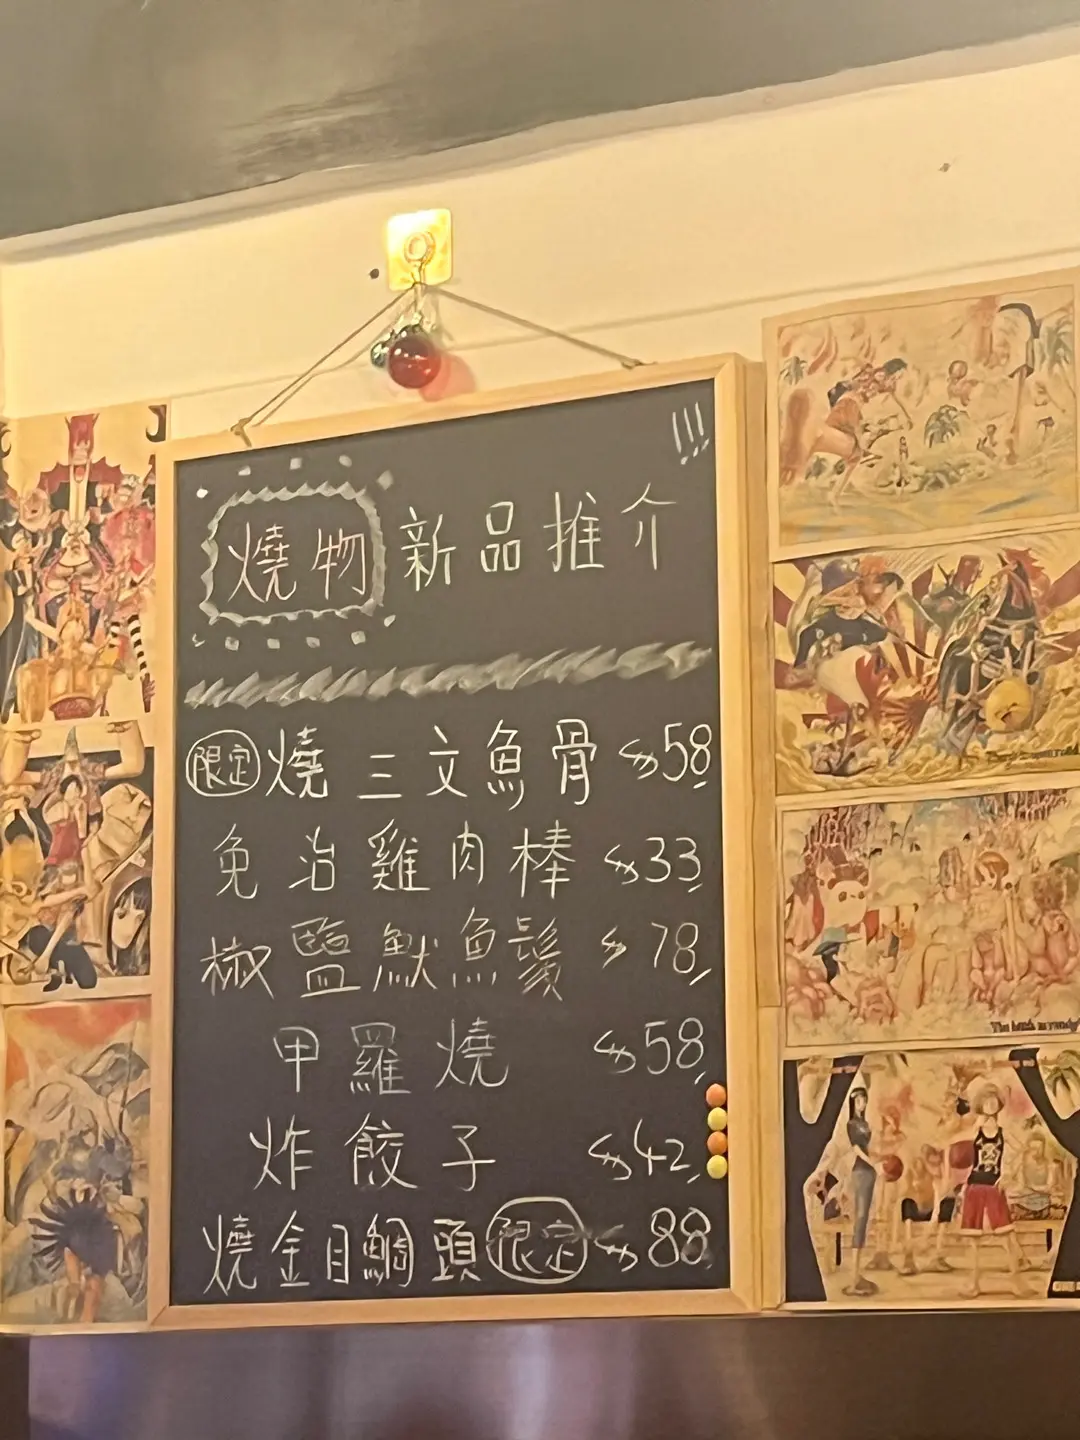 !!!
燒物 新品推介
限定 燒三文魚骨 $58
免治雞肉棒 $33
椒鹽魷魚鬚 $78
甲羅燒 $58
炸餃子 $42
燒金目鯛頭 限定 $88